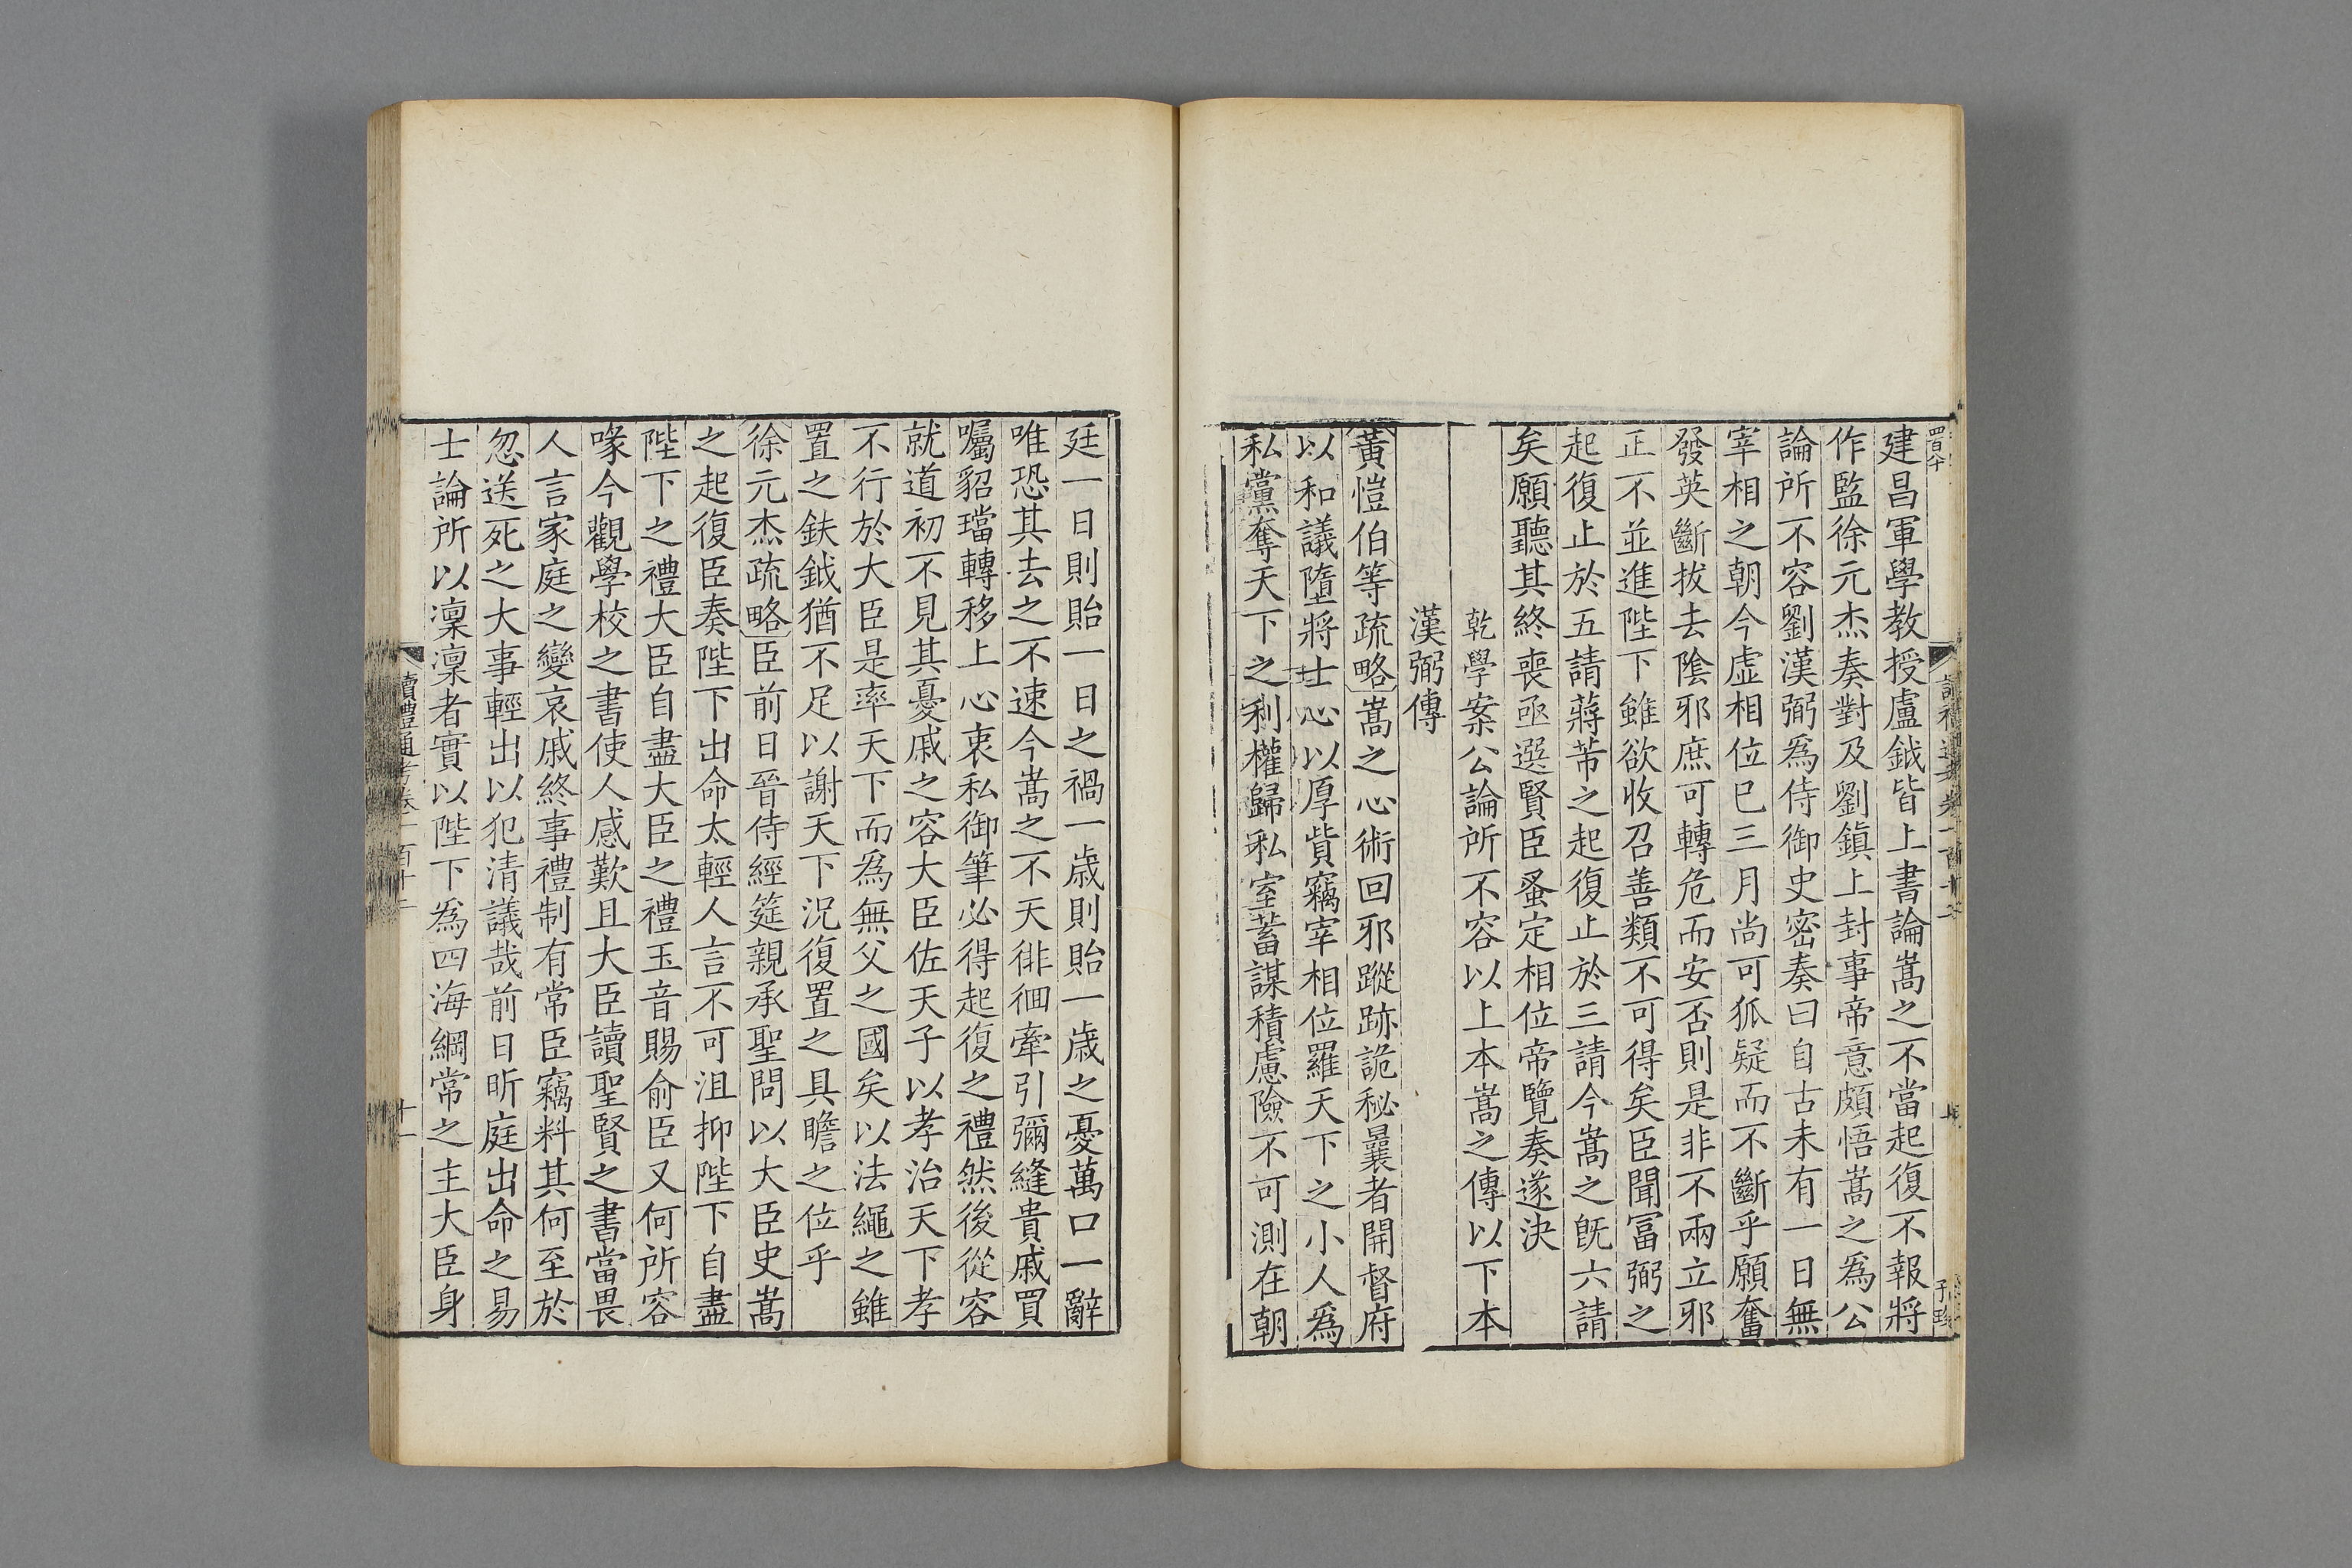 建昌軍學教授盧鉞皆上書論嵩之不當起復不報將
作監徐元杰奏對及劉鎮上封事帝意頗悟嵩之爲公
論所不容劉漢弼爲侍御史密奏曰自古未有一日無
宰相之朝今虛相位已三月尚可狐疑而不斷乎願奮
發英斷拔去陰邪庶可轉危而安否則是非不兩立邪
正不並進陛下雖欲收召善類不可得矣臣聞富弼之
起復止於五請蔣芾之起復止於三請今嵩之旣六請
矣願聽其終喪亟選賢臣蚤定相位帝覽奏遂決
乾學案公論所不容以上本嵩之傳以下本
漢弼傳
黃愷伯等疏略嵩之心術回邪蹤跡詭秘曩者開督府
以和議墮將士心以厚貲竊宰相位羅天下之小人爲
私黨奪天下之利權歸私室蓄謀積慮險不可測在朝
廷一日則貽一日之禍一歲則貽一歲之憂萬口一辭
唯恐其去之不速今嵩之不天徘徊牽引彌縫貴戚買
囑貂璫轉移上心衷私御筆必得起復之禮然後從容
就道初不見其憂戚之容大臣佐天子以孝治天下孝
不行於大臣是率天下而爲無父之國矣以法繩之雖
置之鈇鉞猶不足以謝天下況復置之具瞻之位乎
徐元杰疏略臣前日晉侍經筵親承聖問以大臣史嵩
之起復臣奏陛下出命太輕人言不可沮抑陛下自盡
陛下之禮大臣自盡大臣之禮玉音賜俞臣又何所容
喙今觀學校之書使人感歎且大臣讀聖賢之書當畏
人言家庭之變哀戚終事禮制有常臣竊料其何至於
忽送死之大事輕出以犯清議哉前日昕庭出命之易
士論所以凜凜者實以陛下爲四海綱常之主大臣身
讀禮通考卷一百十二
十一